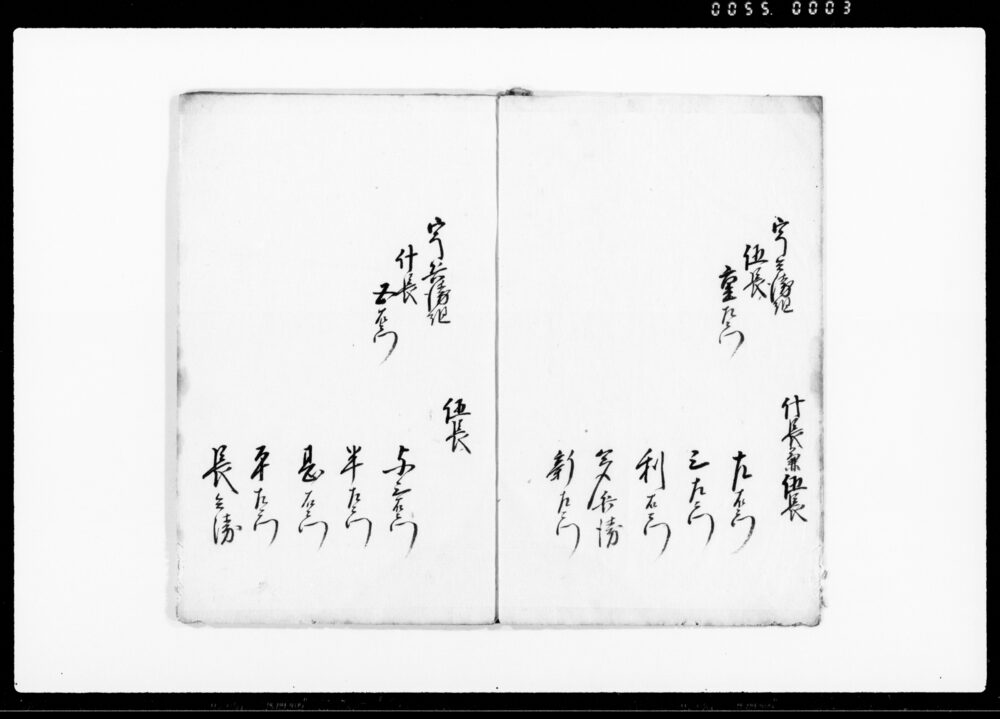 0055. 0003
兵衛組
伍長
重左衛門
什長兼伍長
左右衛門
三左衛門
利右衛門
多兵衛
新左衛門
兵衛組
什長
五右衛門
伍長
与三右衛門
半左衛門
甚右衛門
平左衛門
長兵衛